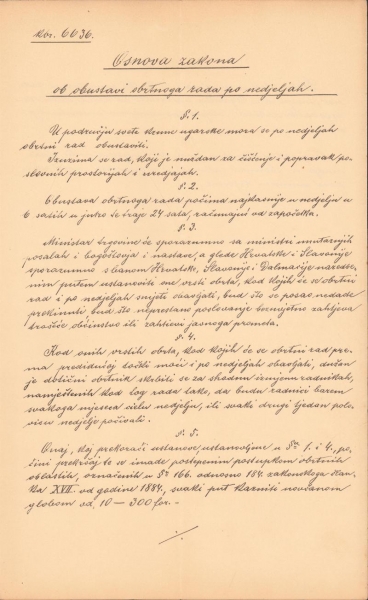 kor. 6636.
Osnova zakona
ob obustavi obrtnoga rada po nedjeljah.
§. 1.
U području svete krune ugarske mora se po nedjeljah
obrtni rad obustaviti.
Izuzima se rad, koji je nuždan za čišćenje i popravak po-
slovnih prostorijah i uredjajah.
§. 2.
Obustava obrtnoga rada počima najkasnije u nedjelju u
6 satih u jutro te traje 24 sata, računajuć od započetka.
§. 3
Ministar trgovine će sporazumno sa ministri nutarnjih
posalah i bogoštovja i nastave, a glede Hrvatske i Slavonije
sporazumno s banom Hrvatske, Slavonije i Dalmacije naredbe-
nim putem ustanoviti one vrsti obrta, kod kojih će se obrtni
rad i po nedjeljah smjeti obavljati, bud što se posao nedade
prekinuti bud što neprestano poslovanje bezuvjetno zahtjeva
trošeće obćinstvo ili zahtjevi javnoga prometa.
§. 4.
Kod onih vrstih obrta, kod kojih će se obrtni rad pre-
ma predidućoj točki moći i po nedjeljah obavljati, dužan
je dotični obrtnik skrbiti se za shodnu izmjenu radnikah,
namještenih kod tog rada tako, da budu radnici barem
svakoga mjeseca cielu nedjelju, ili svaki drugi tjedan polo-
vicu nedjelje počivati.
§. 5.
Onaj, koj prekorači ustanove, ustanovljene u §§. 1. i 4., po-
čini prekršaj te se imade postepenim postupkom obrtnih
oblastih, označenih u §§ 166. odnosno 184. zakonskoga član-
ka XVII. od godine 1884., svaki put kazniti novčanom
globom od 10 – 300 for. –